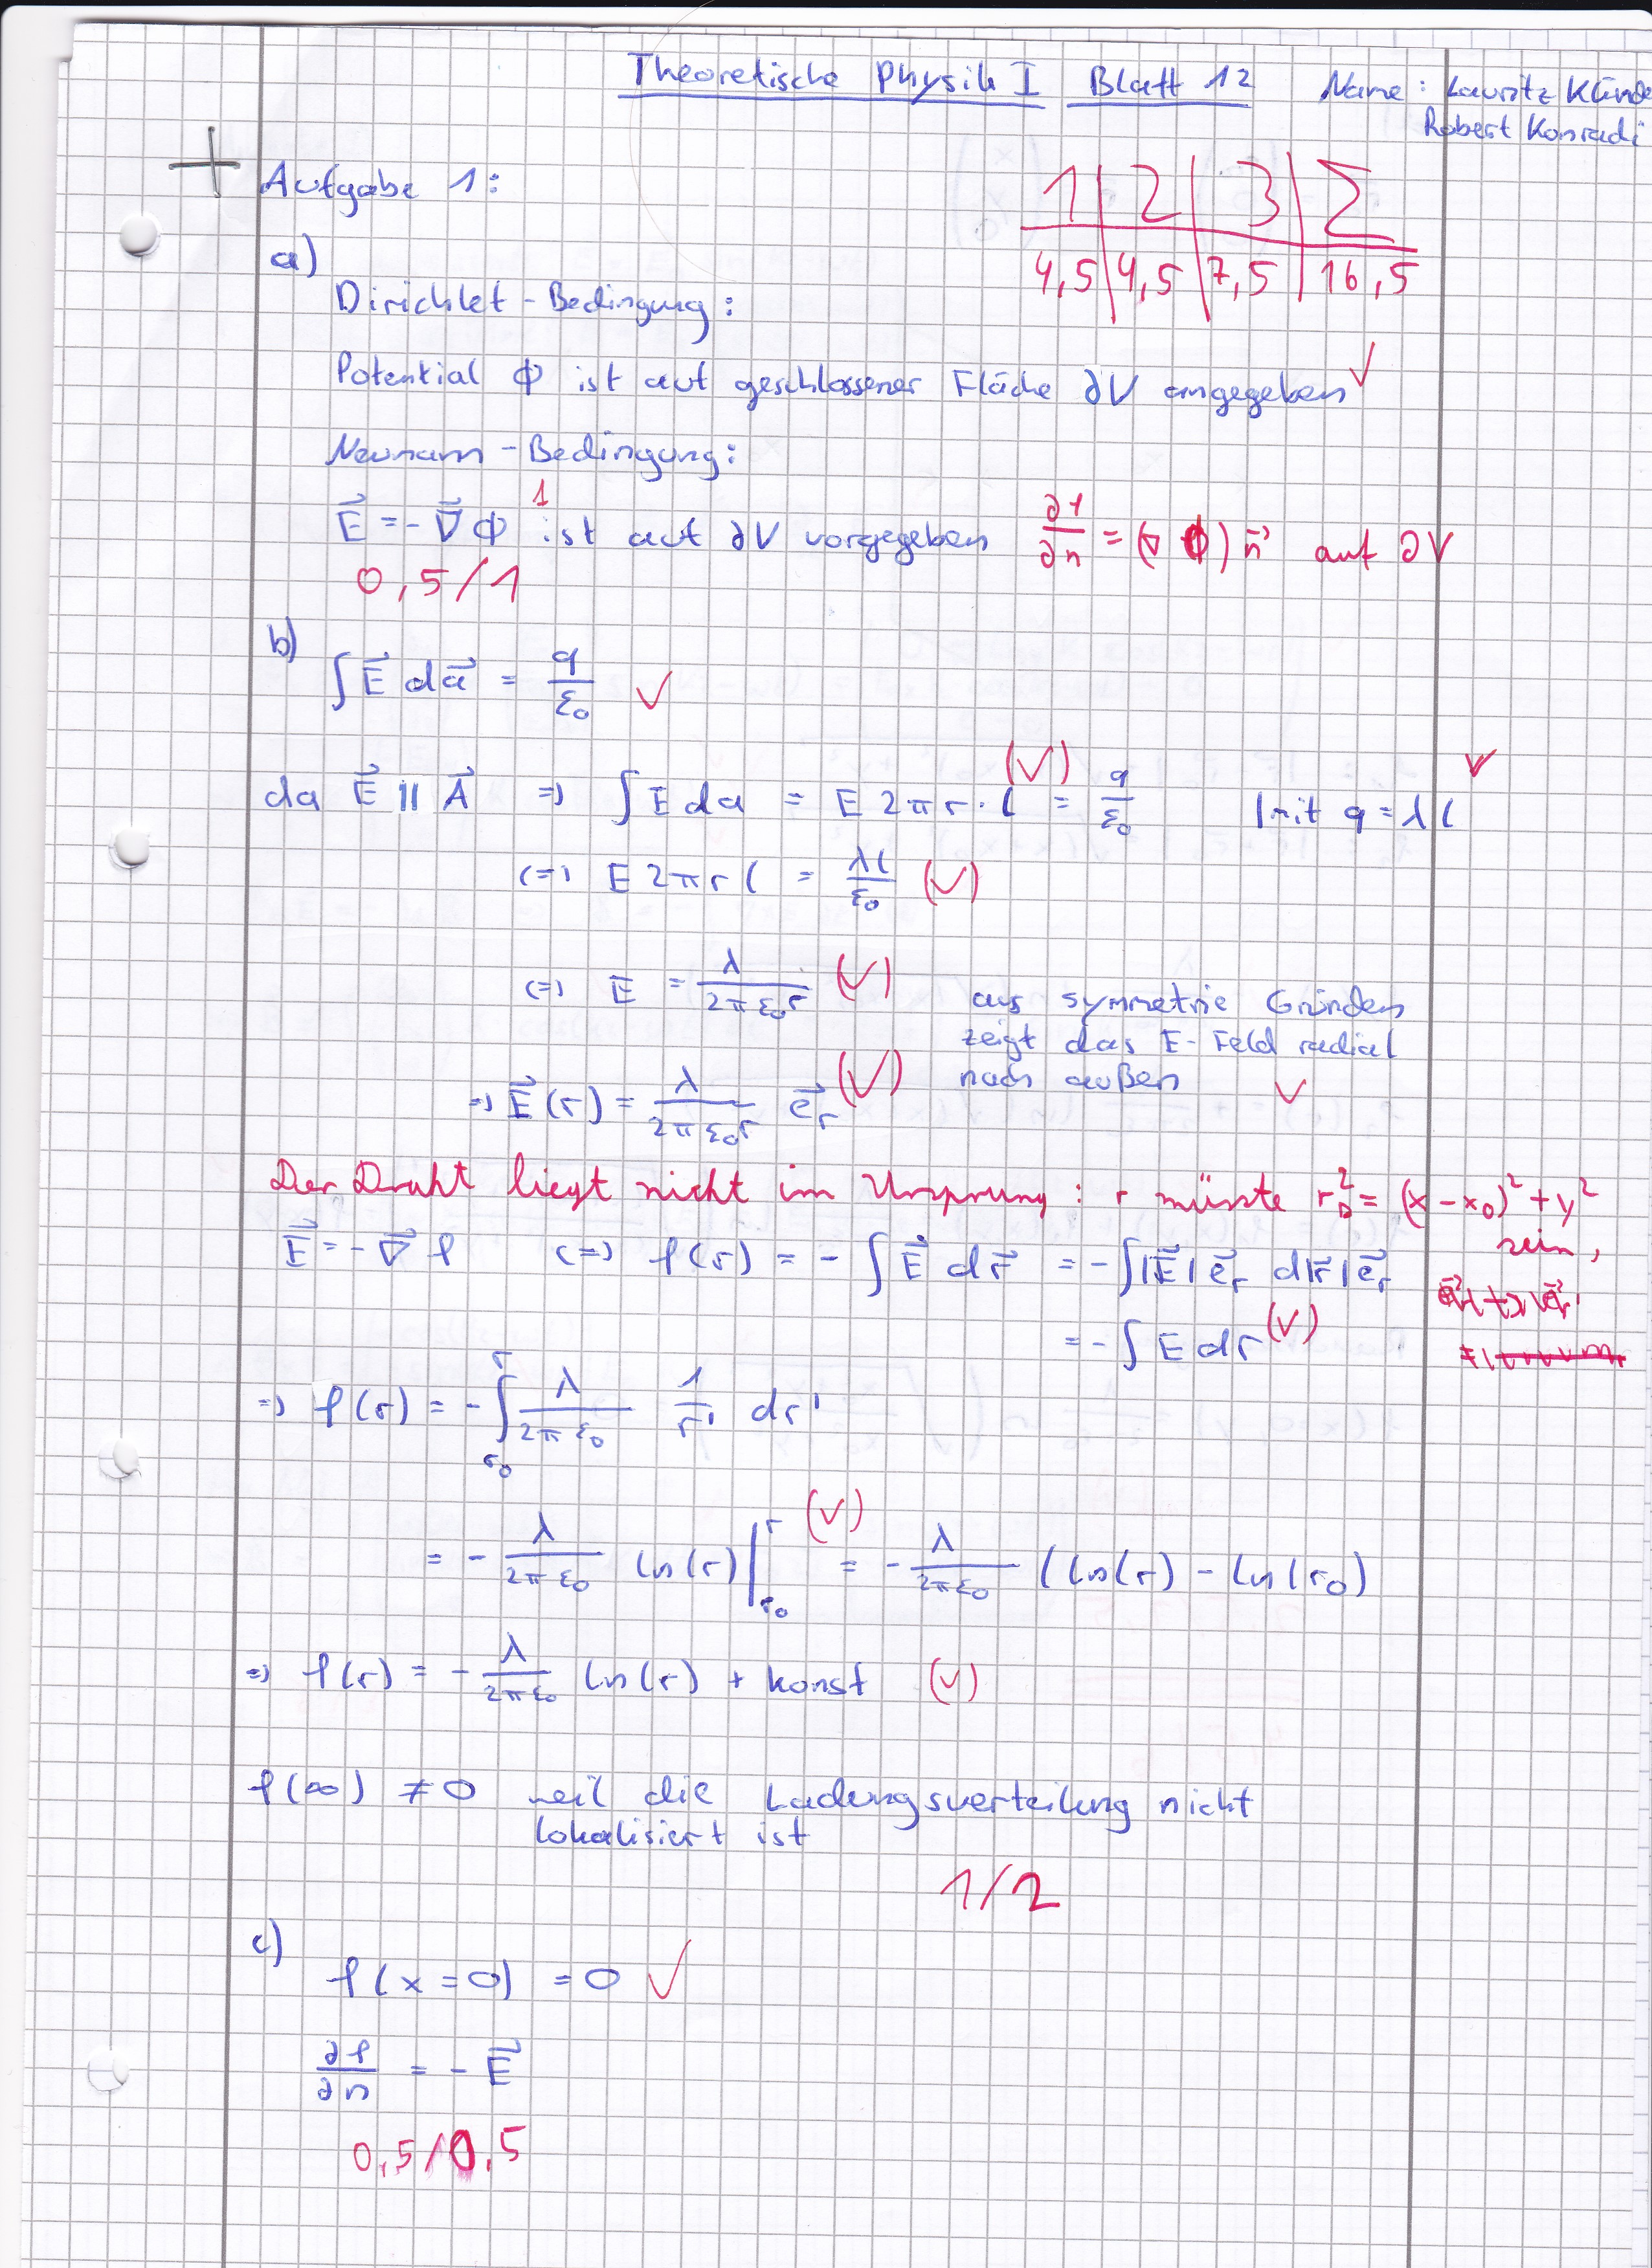 Theoretische Physik I Blatt 12 Name: Lauritz
Robert Konradi
Aufgabe 1:
1 | 2 | 3 | Σ
4,5 | 4,5 | 7,5 | 16,5
a)
Dirichlet-Bedingung:
Potential ϕ ist auf geschlossener Fläche ∂V angegeben ✓
Neumann-Bedingung:
1
E⃗ = -∇⃗ϕ ist auf ∂V vorgegeben ∂φ/∂n = (∇ϕ) n⃗ auf ∂V
0,5/1
b)
∫ E⃗ da⃗ = q/ε₀ ✓
da E⃗ || A⃗ => ∫ E da = E 2πr · l (✓) = q/ε₀ | mit q = λl ✓
<=> E 2πr l = λl/ε₀ (✓)
<=> E = λ/(2πε₀r) (✓) aus symmetrie Gründen
zeigt das E-Feld radial
nach außen ✓
=> E⃗(r) = λ/(2πε₀r) e⃗ᵣ (✓)
Der Draht liegt nicht im Ursprung: r müsste r_D² = (x-x₀)² + y²
sein,
E⃗ = -∇⃗φ <=> φ(r) = -∫ E⃗ dr⃗ = -∫|E⃗| e⃗ᵣ d|r⃗| e⃗ᵣ
= -∫ E dr (✓)
=> φ(r) = -∫_{r₀}^{r} λ/(2πε₀) 1/r' dr'
= - λ/(2πε₀) ln(r) |_{r₀}^{r} (✓) = - λ/(2πε₀) (ln(r) - ln(r₀)
=> φ(r) = - λ/(2πε₀) ln(r) + konst (✓)
φ(∞) ≠ 0 weil die Ladungsverteilung nicht
lokalisiert ist
1/2
c)
φ(x=0) = 0 ✓
∂φ/∂n = -E⃗
0,5/0,5